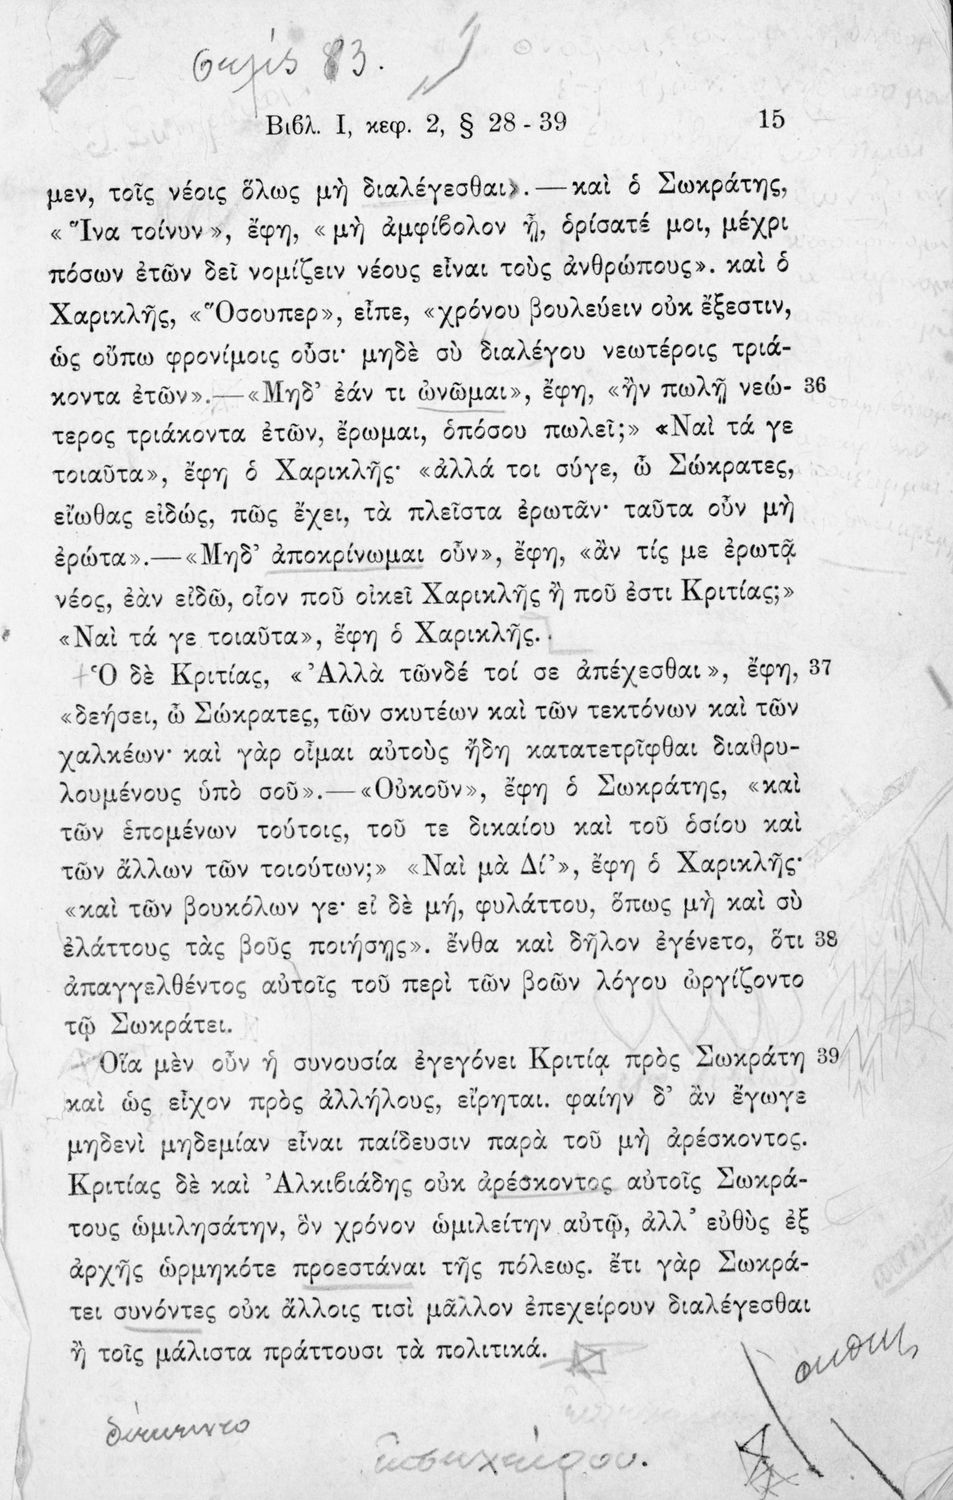 σελίς 83.
Βιβλ. Ι, κεφ. 2, § 28 - 39 15
μεν, τοῖς νέοις ὅλως μὴ διαλέγεσθαι». — καὶ ὁ Σωκράτης,
« Ἵνα τοίνυν », ἔφη, « μὴ ἀμφίβολον ᾖ, ὁρίσατέ μοι, μέχρι
πόσων ἐτῶν δεῖ νομίζειν νέους εἶναι τοὺς ἀνθρώπους». καὶ ὁ
Χαρικλῆς, «Ὅσουπερ», εἶπε, «χρόνου βουλεύειν οὐκ ἔξεστιν,
ὡς οὔπω φρονίμοις οὖσι· μηδὲ σὺ διαλέγου νεωτέροις τριά-
κοντα ἐτῶν».—«Μηδ’ ἐάν τι ὠνῶμαι», ἔφη, «ἢν πωλῇ νεώ- 36
τερος τριάκοντα ἐτῶν, ἔρωμαι, ὁπόσου πωλεῖ;» «Ναὶ τά γε
τοιαῦτα», ἔφη ὁ Χαρικλῆς· «ἀλλά τοι σύγε, ὦ Σώκρατες,
εἴωθας εἰδώς, πῶς ἔχει, τὰ πλεῖστα ἐρωτᾶν· ταῦτα οὖν μὴ
ἐρώτα».—«Μηδ’ ἀποκρίνωμαι οὖν», ἔφη, «ἂν τίς με ἐρωτᾷ
νέος, ἐὰν εἰδῶ, οἷον ποῦ οἰκεῖ Χαρικλῆς ἢ ποῦ ἐστι Κριτίας;»
«Ναὶ τά γε τοιαῦτα», ἔφη ὁ Χαρικλῆς.
Ὁ δὲ Κριτίας, « Ἀλλὰ τῶνδέ τοί σε ἀπέχεσθαι », ἔφη, 37
«δεήσει, ὦ Σώκρατες, τῶν σκυτέων καὶ τῶν τεκτόνων καὶ τῶν
χαλκέων· καὶ γὰρ οἶμαι αὐτοὺς ἤδη κατατετρῖφθαι διαθρυ-
λουμένους ὑπὸ σοῦ».—«Οὐκοῦν», ἔφη ὁ Σωκράτης, «καὶ
τῶν ἑπομένων τούτοις, τοῦ τε δικαίου καὶ τοῦ ὁσίου καὶ
τῶν ἄλλων τῶν τοιούτων;» «Ναὶ μὰ Δί’», ἔφη ὁ Χαρικλῆς·
«καὶ τῶν βουκόλων γε· εἰ δὲ μή, φυλάττου, ὅπως μὴ καὶ σὺ
ἐλάττους τὰς βοῦς ποιήσῃς». ἔνθα καὶ δῆλον ἐγένετο, ὅτι 38
ἀπαγγελθέντος αὐτοῖς τοῦ περὶ τῶν βοῶν λόγου ὠργίζοντο
τῷ Σωκράτει.
Οἵα μὲν οὖν ἡ συνουσία ἐγεγόνει Κριτίᾳ πρὸς Σωκράτη 39
καὶ ὡς εἶχον πρὸς ἀλλήλους, εἴρηται. φαίην δ’ ἂν ἔγωγε
μηδενὶ μηδεμίαν εἶναι παίδευσιν παρὰ τοῦ μὴ ἀρέσκοντος.
Κριτίας δὲ καὶ Ἀλκιβιάδης οὐκ ἀρέσκοντος αὐτοῖς Σωκρά-
τους ὡμιλησάτην, ὃν χρόνον ὡμιλείτην αὐτῷ, ἀλλ’ εὐθὺς ἐξ
ἀρχῆς ὡρμηκότε προεστάναι τῆς πόλεως. ἔτι γὰρ Σωκρά-
τει συνόντες οὐκ ἄλλοις τισὶ μᾶλλον ἐπεχείρουν διαλέγεσθαι
ἢ τοῖς μάλιστα πράττουσι τὰ πολιτικά.